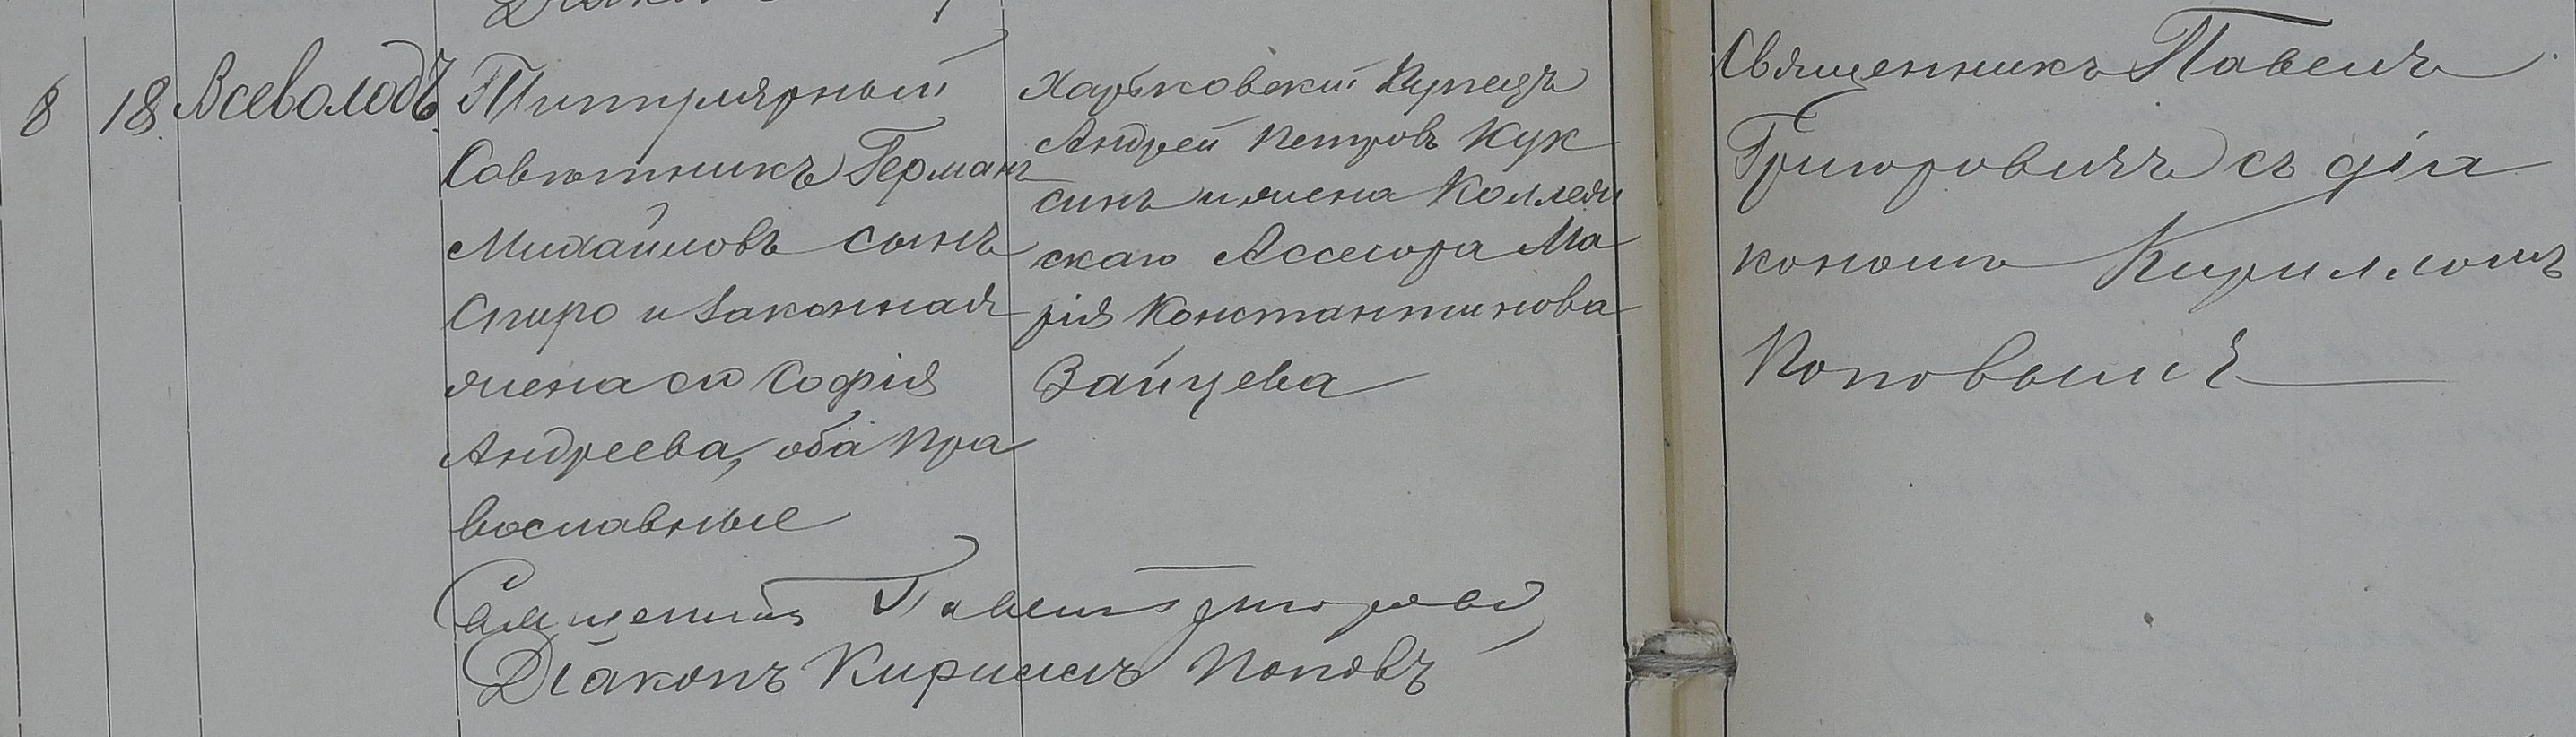 8 18 Всеволодъ
Титулярный
Совѣтникъ Германъ
Михайловъ сынъ
Спиро и законная
жена его Софія
Андреева, оба пра
вославные
Харьковскій Купецъ
Андрей Петровъ Кук
синъ и жена Коллежи
скаго Ассесора Ма
рія Константинова
Зайцева
Священникъ Павелъ
Григоровичъ съ діа
кономъ Кирилломъ
Поповымъ
Священникъ Павелъ Григорович
Діаконъ Кириллъ Поповъ